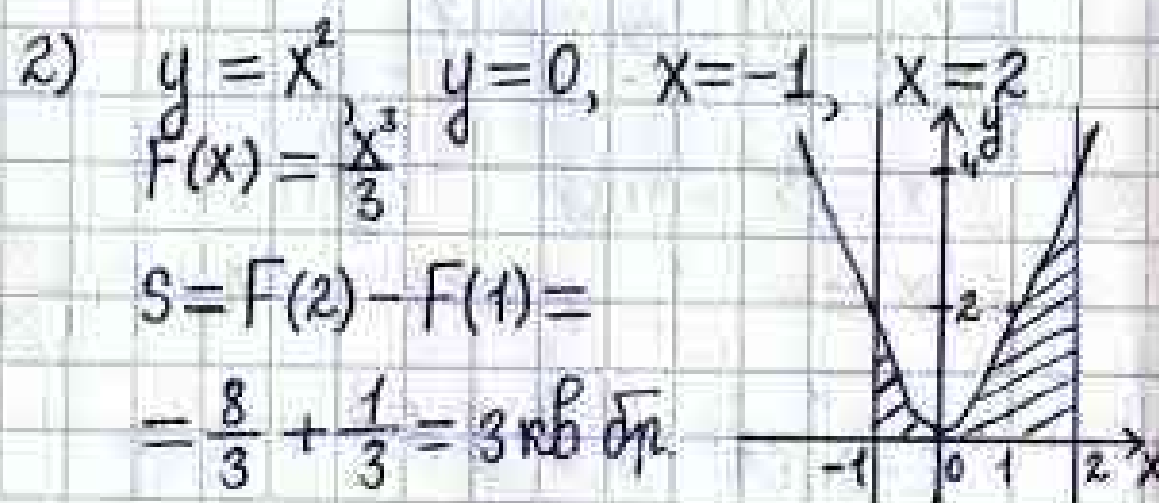 2) y = x², y = 0, x = -1, x = 2
F(x) = x³/3
S = F(2) - F(1) =
= 8/3 + 1/3 = 3 кв
y
4
2
-1 0 1 2 x